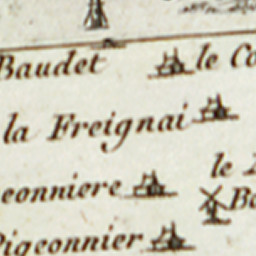 Baudet le Co
la Freignai
eonniere le
Ba
Pigeonnier